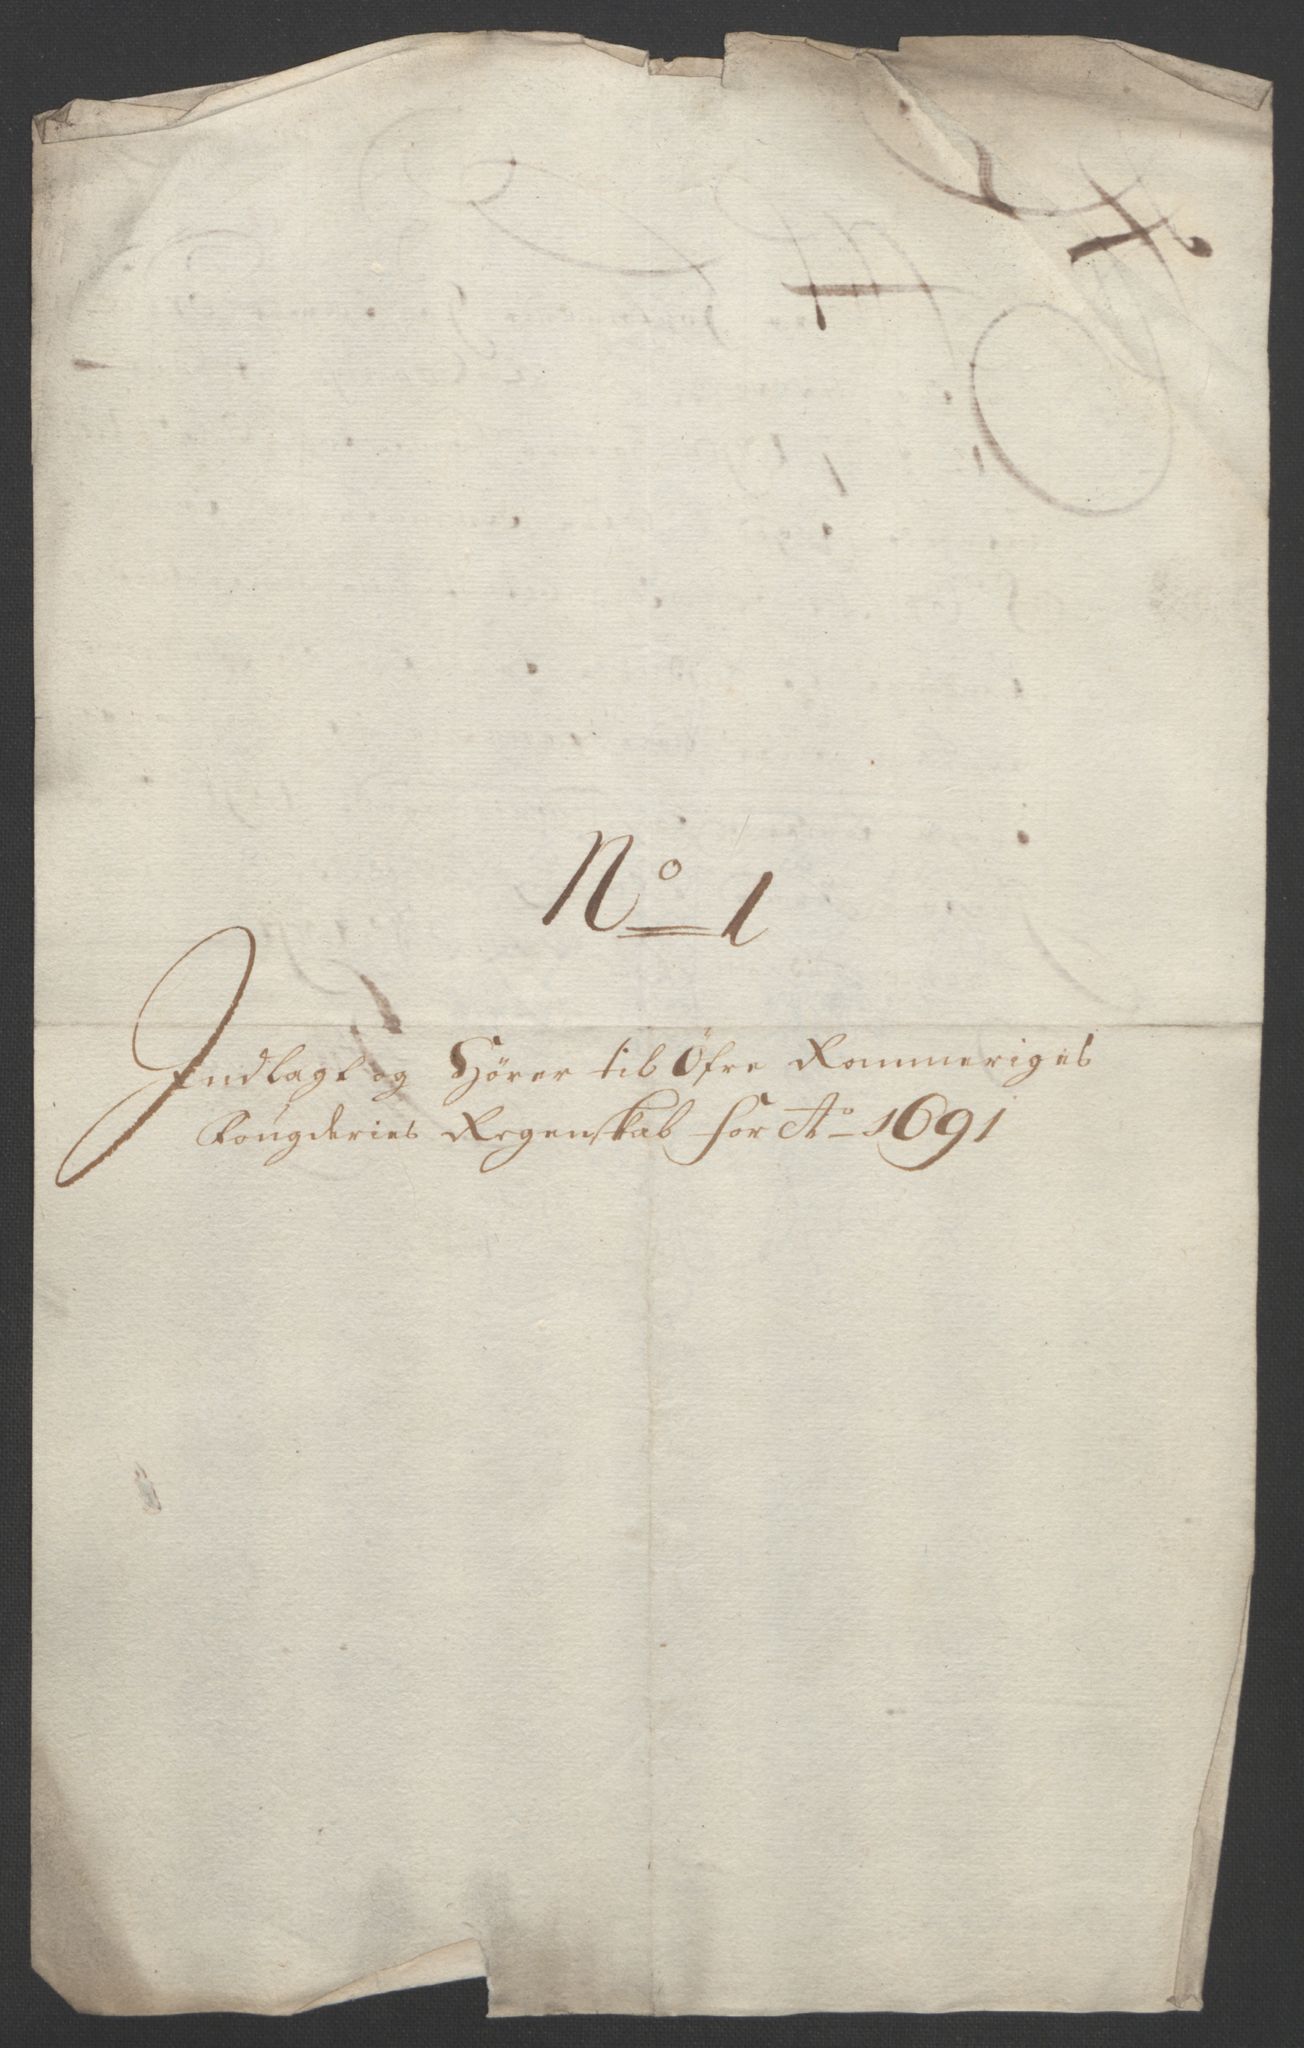 No 1
Indlagt og Hører til Öfre Rommeriges
Fougderies Regenskab for Ao 1691